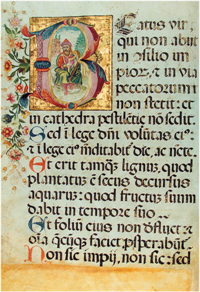 BEatus vir,
qui non abiit
in ɔsilio im
pior, et in via
peccatorum
non stetit: et
in cathedra pestilētię nō sedit.
Sed ī lege dnī volūtas ei9:
et ī lege ei9 meditabit die, ac
Et erit tamq̄ lignū, quod
plantatū ē secus decursus
aquarū: quod fructū suum
dabit in tempore suo
Et foliū eius non dfluet: et
oīa faciet, psperabūt.
Non sic impij, non sic: sed